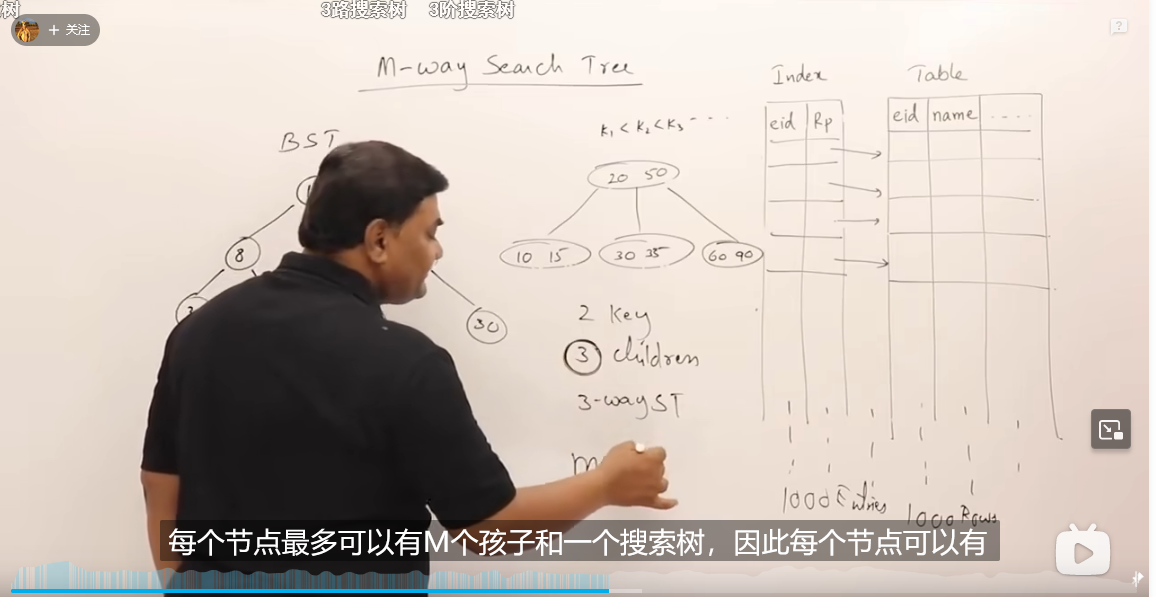 树
3路搜索树 3阶搜索树
+ 关注
M-way Search Tree
BST
8
30
K₁ < K₂ < K₃ - - -
20 50
10 15
30 35
60 90
2 Key
3 children
3-way ST
m
Index
eid Rp
1000 Entries
Table
eid name ....
1000 Rows
每个节点最多可以有M个孩子和一个搜索树，因此每个节点可以有